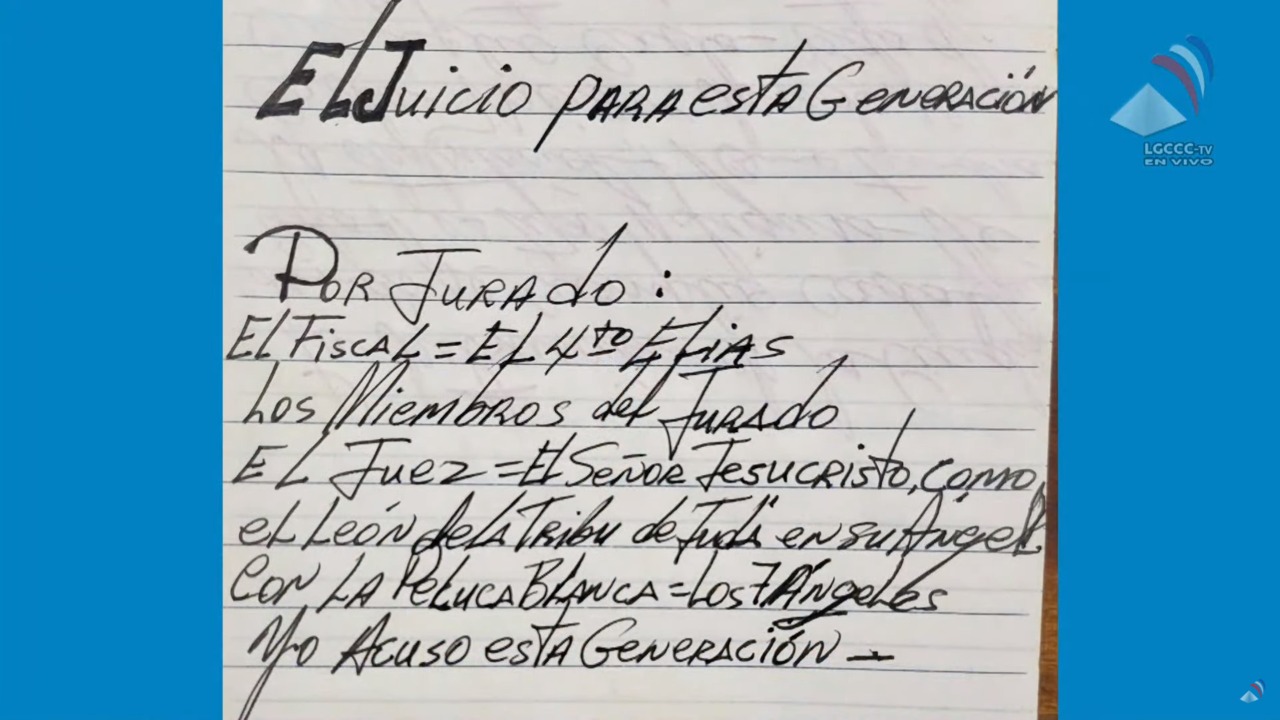 El Juicio para esta Generación
Por Jurado:
El Fiscal = El 4to Elias
Los Miembros del Jurado
El Juez = El Señor Jesucristo, como
el León de la Tribu de Judá en su Ángel
Con la Peluca Blanca = Los 7 Ángeles
Yo Acuso esta Generación —
LGCCC-TV
EN VIVO